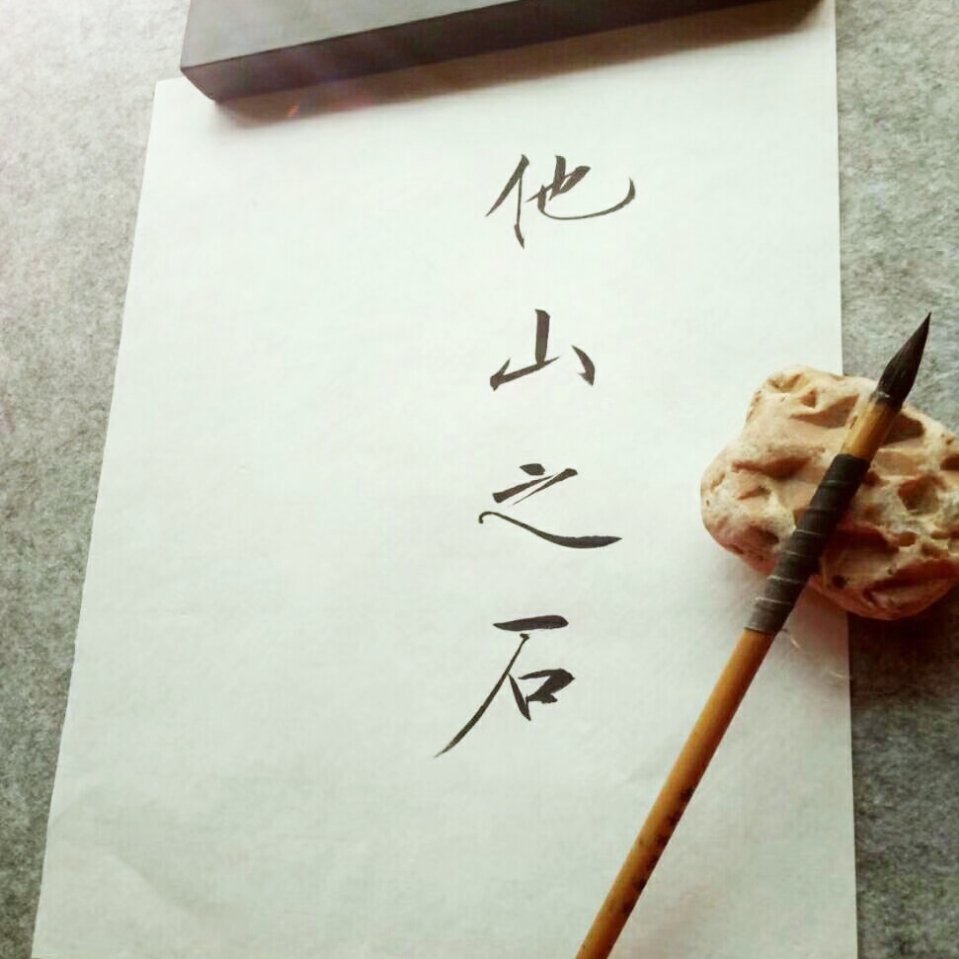 他山之石